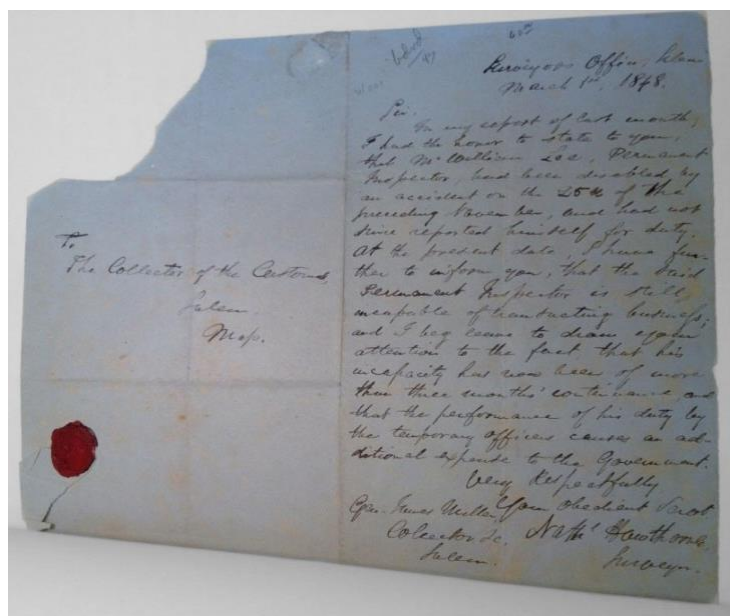 To
The Collector of the Customs,
Salem
Mass.
Surveyors Office, Salem
March 1st, 1848.
Sir.
In my report of last month,
I had the honor to state to you,
that Mr William Lee, Permanent
Inspector, had been disabled by
an accident on the 25th of the
preceding November, and had not
since reported himself for duty.
At the present date, I have fur-
ther to inform you, that the said
Permanent Inspector is still
incapable of transacting business;
and I beg leave to draw your
attention to the fact that his
incapacity has now been of more
than three months' continuance, and
that the performance of his duty by
the temporary officers causes an ad-
ditional expense to the Government.
Very Respectfully
Your obedient Servt
Nathl Hawthorne.
Surveyor.
Gen. James Miller,
Collector &c.
Salem.